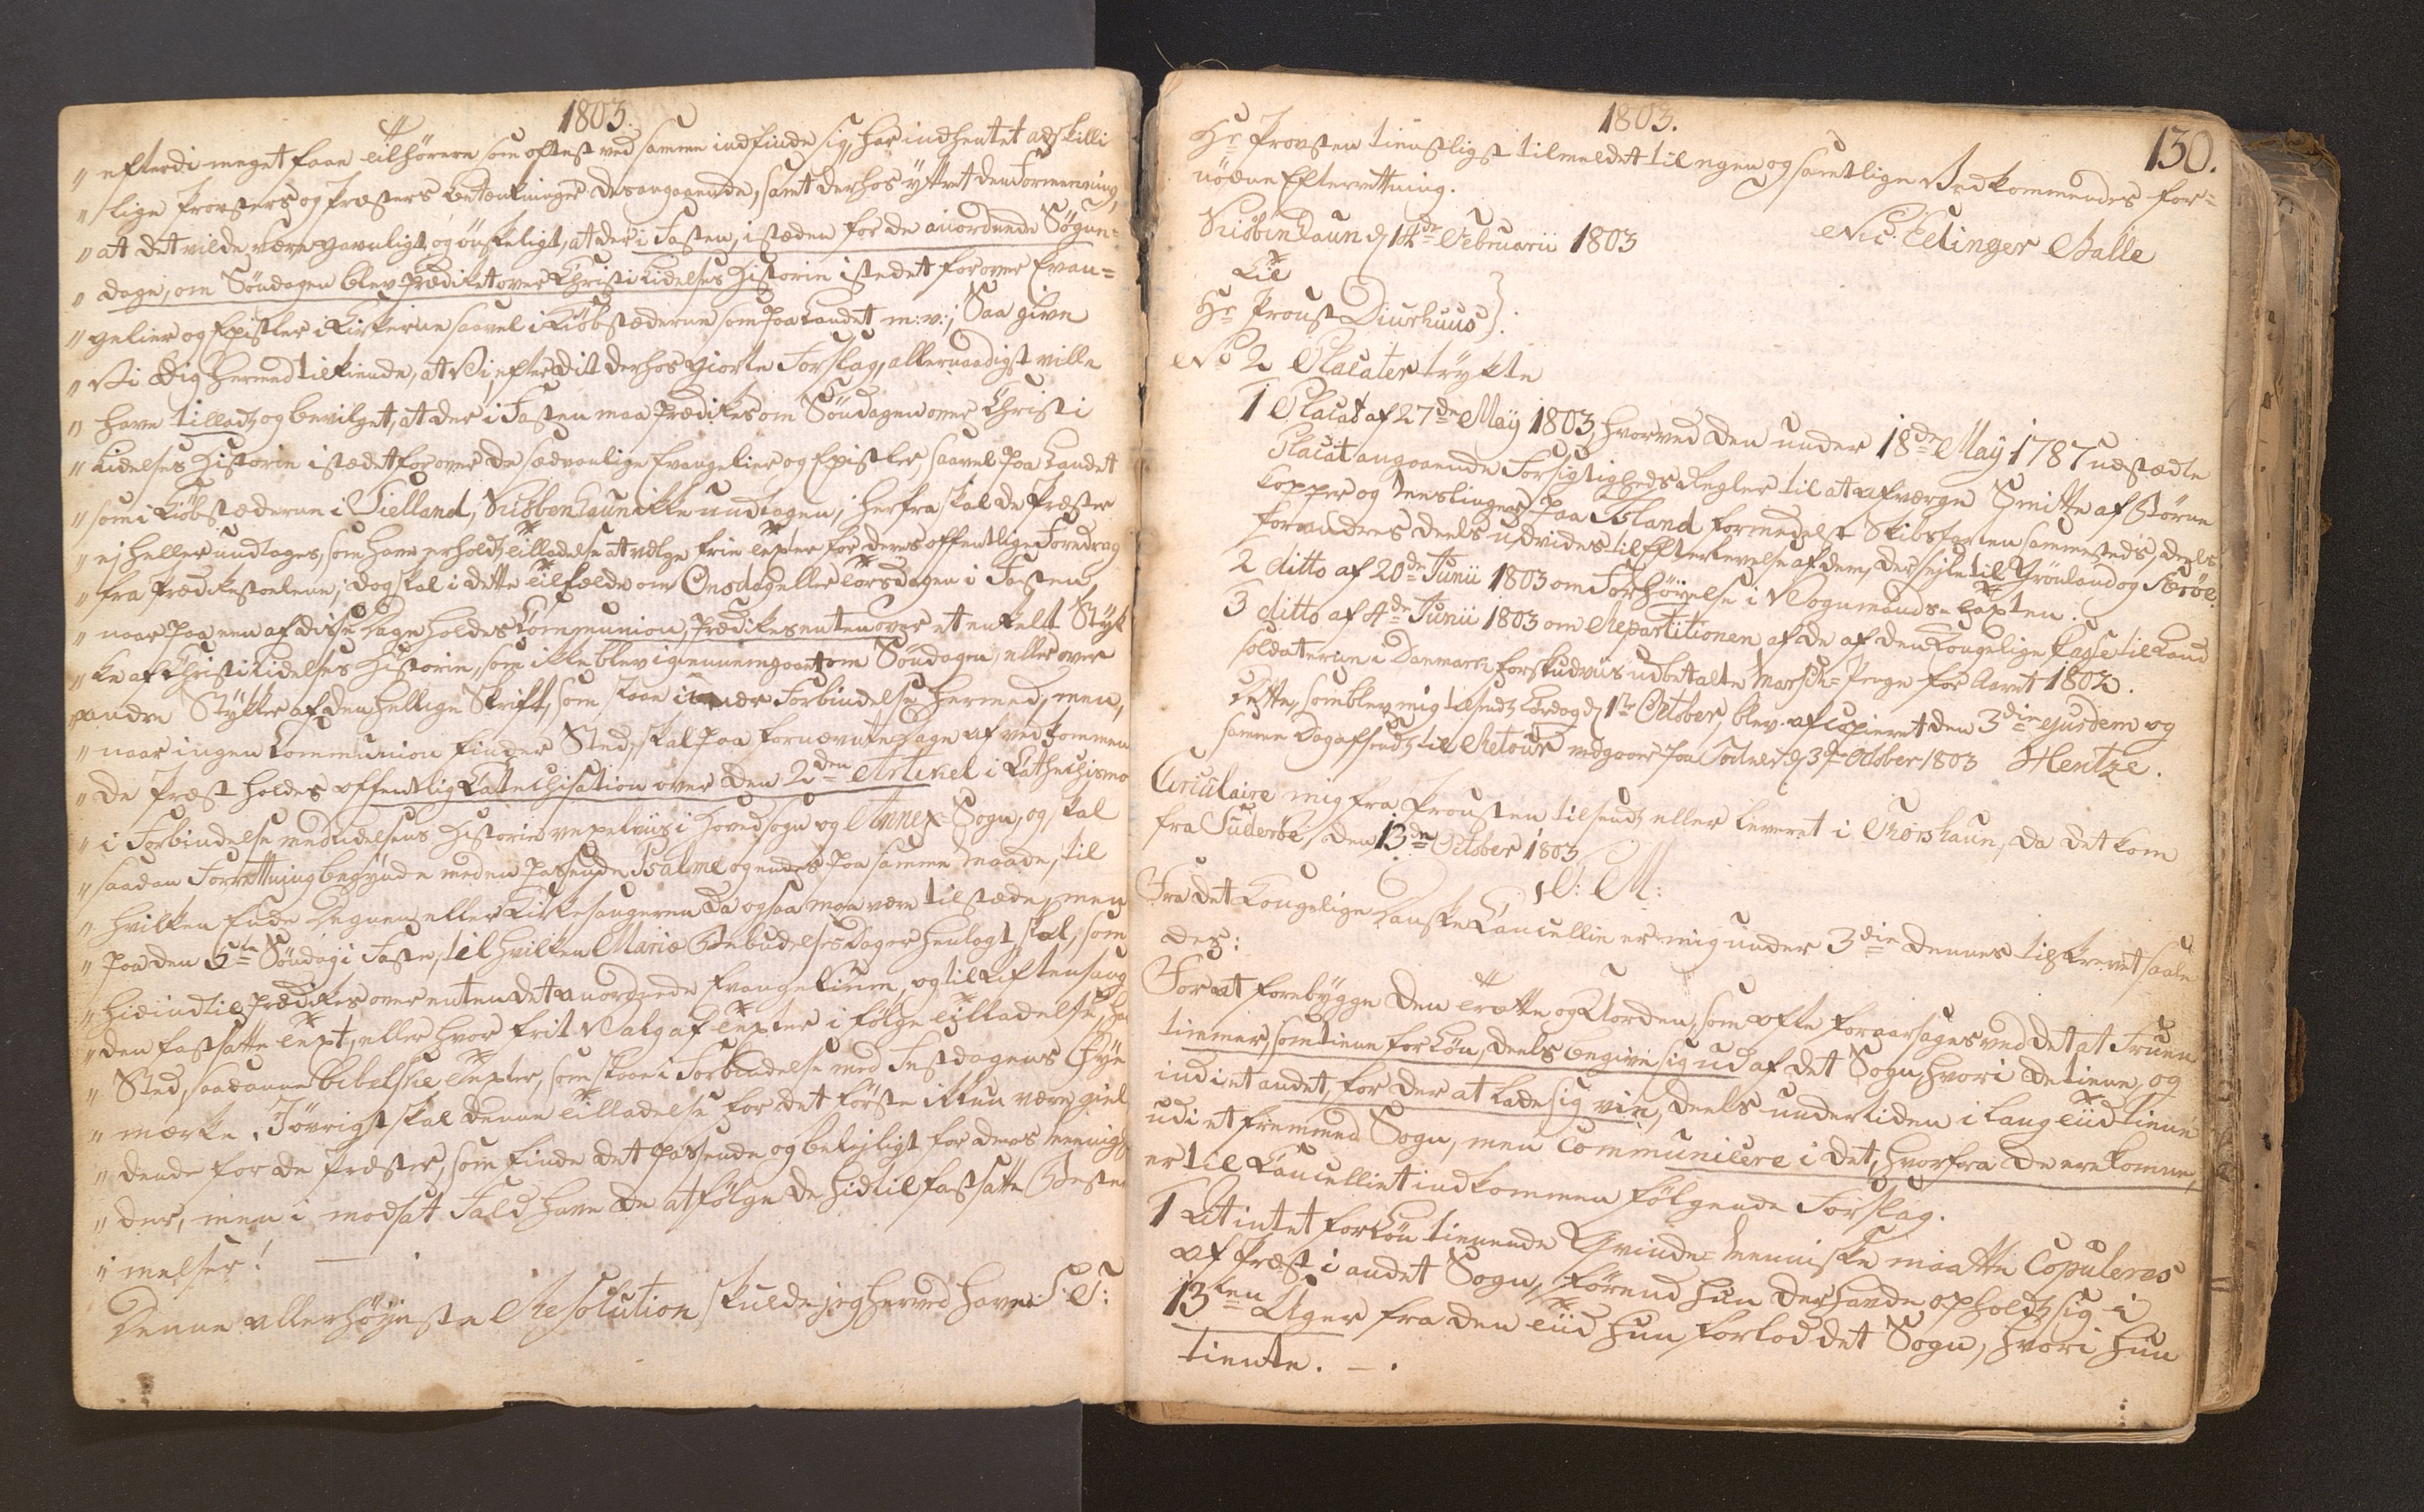 1803.
„ efterdi meget faae Tilhørere som oftest ved samme indfinde sig, har indhentet adskilli
„ lige Provsters og Præsters Betænkninger desangaaende, samt derhos yttret den Formening,
„ at det vilde være gavnligt og ønskeligt, at der i Fasten, i stæden for de anordnede Søgne-
„ dage, om Søndagen blev Prædiket over Christi Lidelses Historie istedet for over Evan=
„ gelier og Epistler i Kirkerne saavel i Kiøbstæderne som paa Landet m: v:; Saa give
„ Vi Dig hermed tilkiende, at Vi, efter dit derhos giorte Forslag, allernaadigst ville
„ have tilladt og bevilget, at der i Fasten maa Prædikes om Søndagen over Christi
„ Lidelses Historie istædet for over de sædvanlige Evangelier og Epistler, saavel paa Landet
„ som i Kiøbstæderne i Sielland, Kiøbenhavn ikke undtagen; herfra skal de Præster
„ ej heller undtages, som have erholdt Tilladelse at vælge frie Texter for deres offentlige Foredrag
„ fra Prædikestoelene; dog skal i dette Tilfælde om Onsdag eller Torsdagen i Fasten,
„ naar paa een af disse Dage holdes Communion, Prædikes enten over et enkelt Styk
„ ke af Christi Lidelses Historie, som ikke blev igiennemgaaet om Søndagen, eller over
„ andre Stykker af den hellige Skrift, som staae i nær Forbindelse hermed; men,
„ naar ingen Communion finder Sted, skal paa fornævnte Dage af vedkommen
„ de Præst holdes offentlig Catechisation over den 2den Artikel i Cathechismo
„ i Forbindelse med Lidelsens Historie vexelviis i Hovedsogn og Annex-Sogn, og skal
„ saadan Forretning begynde med en passende Psalme og endes paa samme Maade, til
„ hvilken Ende Degnen eller Kirkesangeren da ogsaa maa være tilstæde; men
„ paa den 5te Søndag i Faste, til hvilken Mariæ Bebudelses Dag er henlagt, skal, som
„ hidindtil Prædikes over enten det anordnede Evangelium, og til Aftensang
„ den fastsatte Text, eller hvor frit Valg af Texter i følge Tilladelse, ha
„ Sted, saadanne bibelske Texter, som staae i Forbindelse med Festdagens Øye
„ mærke. Iøvrigt skal denne Tilladelse for det første ikkun være giel
„ dende for de Præster, som finde det passende og belejligt for deres Meenig
„ der, men i modsat Fald have de at følge de hidtil fastsatte Bestem
„ melser! —
Denne allerhøyeste Resolution skulde jeg herved have S: T:
1803.
130.
Hr Provsten tienstligst tilmeldet til egen og samtlige Vedkommendes for=
nødne Efterretning.
Kiøbenhavn d 14de Februarii 1803
Nic: Edinger Balle
Til
Hr Proust Diurhuus}.
No 2 Placater trykte
1 Placat af 27de Maÿ 1803, hvorved den under 18de Maÿ 1787 udstædte
Placat angaaende Forsigtigheds Regler til at afværge Smitte af Børne
Kopper og Meslinger paa Island formedelst Skibsfarten sammesteds, deels
forandres deels udvides til Efterlevelse af dem, der sejle til Grønland og Færøe.
2 ditto af 20de Junii 1803 om Forhøyelse i Vognmands-Taxten.
3 ditto af 4de Junii 1803 om Repartitionen af de af den Kongelige Casse til Land
soldaterne i Danmark forskudviis udbetalte Marsch-Penge for Aaret 1802.
Dette, som blev mig tilsendt Lørdag d 1te October, blev afcopieret den 3die ejusdem og
samme Dag afsendt til Retour vedgaaer paa Sælæt d 3de October 1803 Hentze.
Circulaire mig fra Prousten tilsendt eller leveret i Thorshavn, da det kom
fra Suderöe, den 13de October 1803
P: M:
Fra det Kongelige Danske Cancellie er mig under 3die dennes tilskrevet saale
des:
For at forebygge den Trætte og Uorden, som ofte foraarsages ved det at Fruen
timmer, som tiene for Løn, deels begive sig ud af det Sogn, hvori de tiene, og
ind i et andet, for der at lade sig vie, deels undertiden i lang Tiid tiene
udi et fremmed Sogn, men communicere i det, hvorfra de ere komne,
er til Cancelliet indkommen følgende Forslag.
1 At intet for Løn tienende Qvinde-Menniske maatte Copuleres
af Præst i andet Sogn, førend hun der havde opholdt sig i
13ten Uger fra den Tiid hun forlod det Sogn, hvori hun
tiente. — .